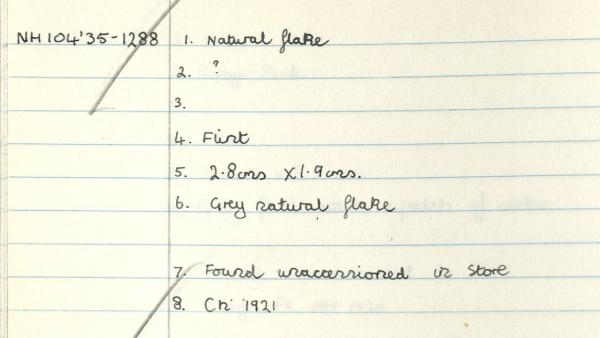 NH104'35-1288 1. Natural flake
2. ?
3.
4. Flint
5. 2.8cms x 1.9cms.
6. Grey natural flake
7. Found unaccessioned in Store
8. 1921